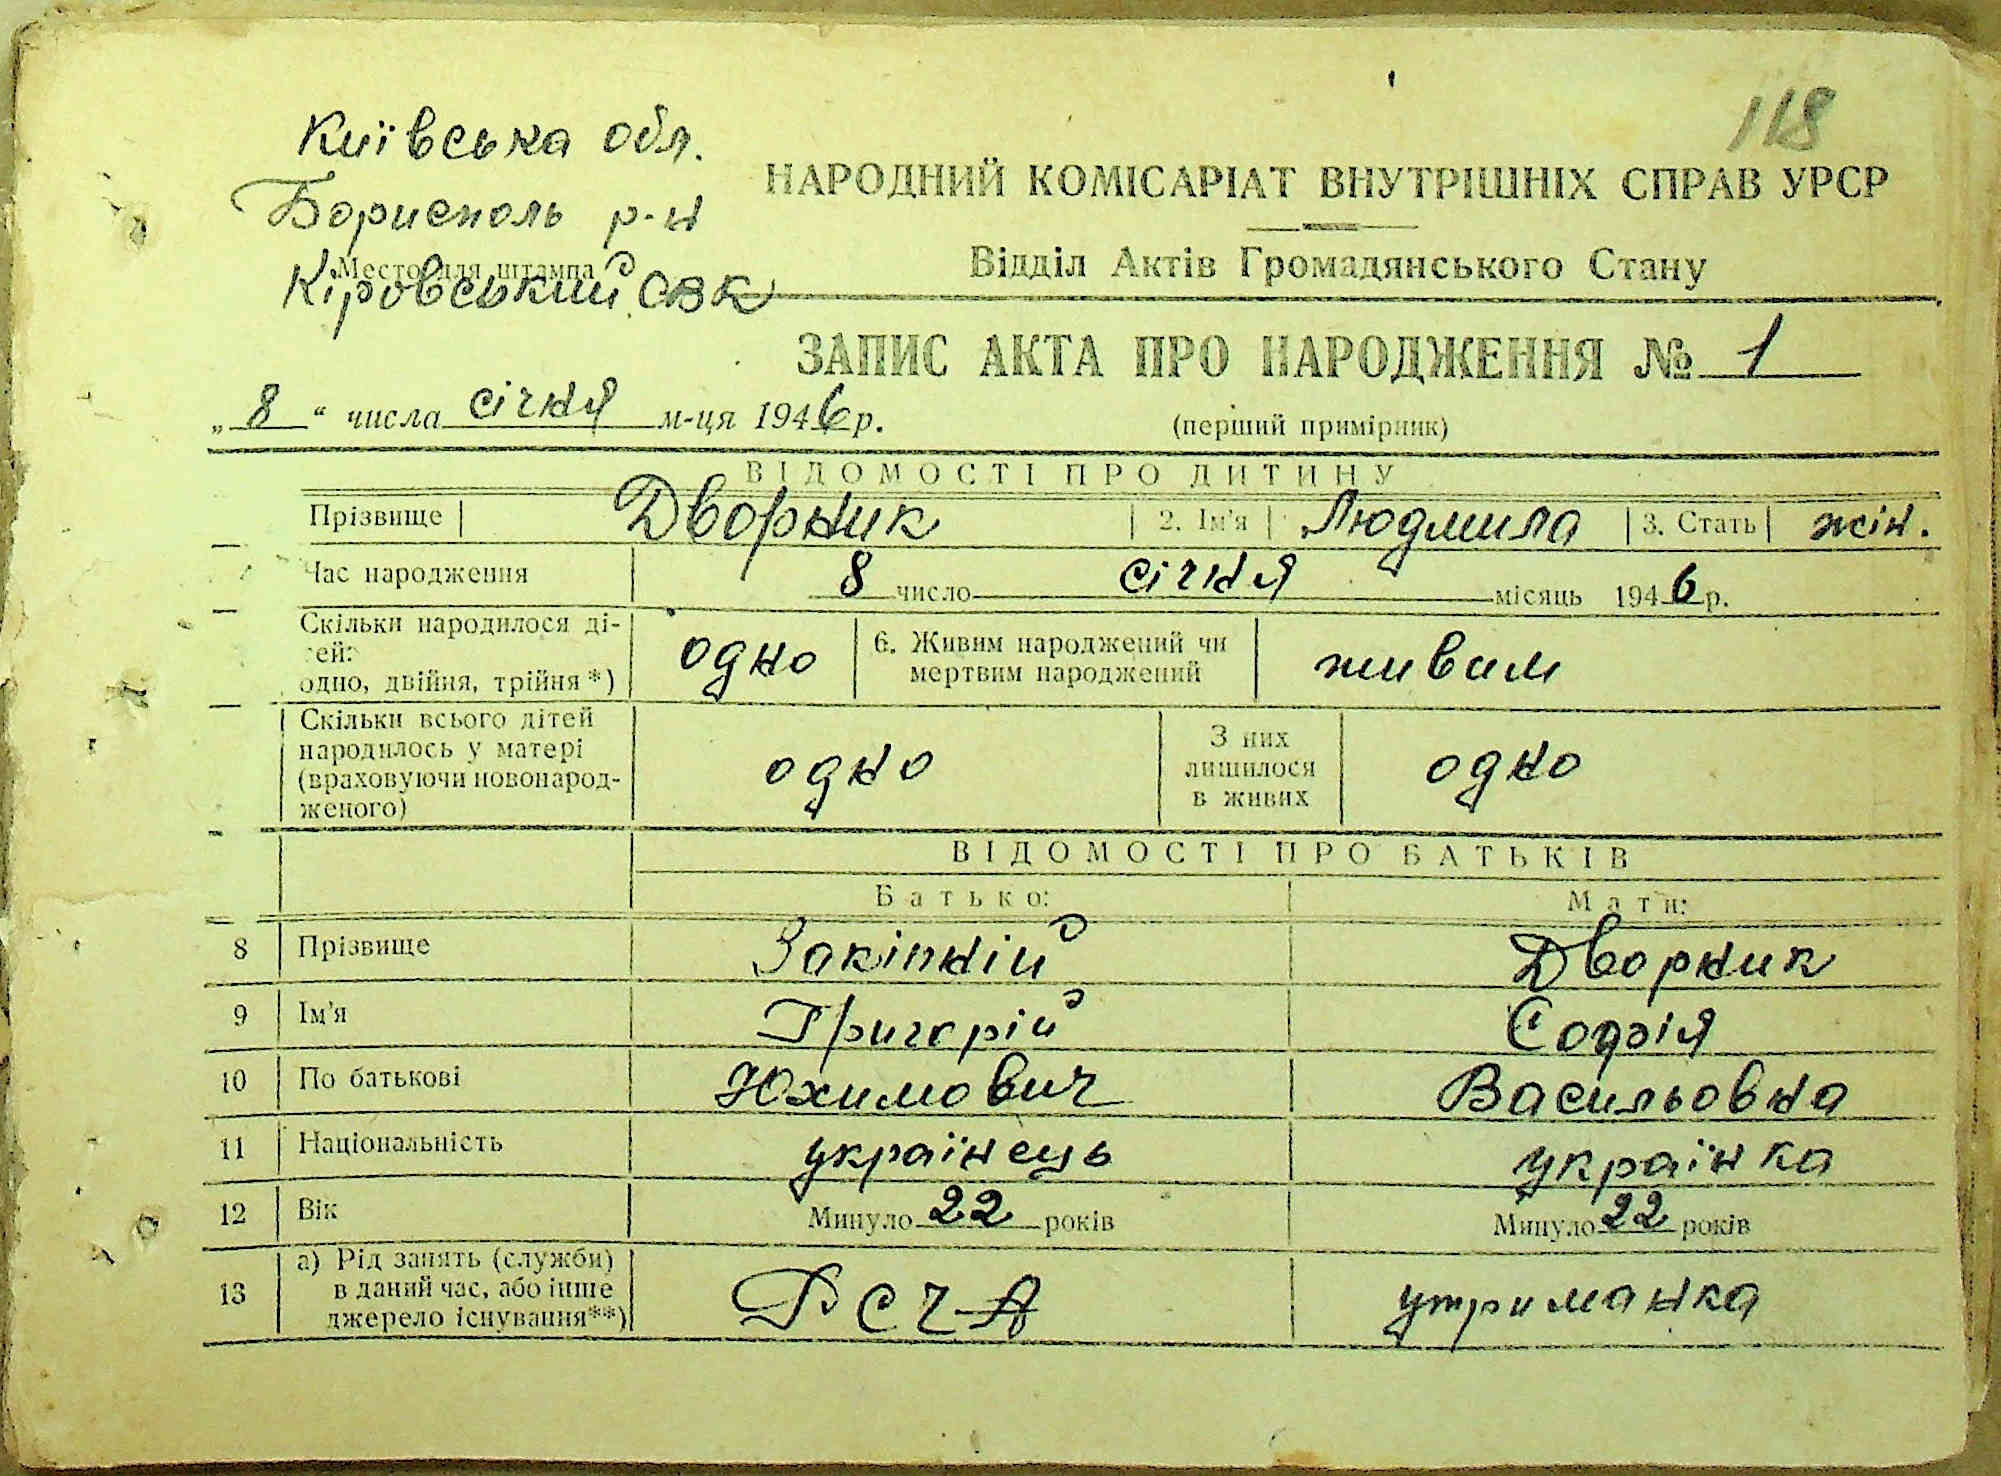 118
Київська обл.
Бориспол​ь р-н
Место для штампа
Кіровський СВК
НАРОДНИЙ КОМІСАРІАТ ВНУТРІШНІХ СПРАВ УРСР
Відділ Актів Громадянського Стану
ЗАПИС АКТА ПРО НАРОДЖЕННЯ № 1
„ 8 “ числа січня м-ця 1946 р.
(перший примірник)
ВІДОМОСТІ ПРО ДИТИНУ
Прізвище Дворник 2. Ім'я Людмила 3. Стать жін.
Час народження 8 число січня місяць 1946 р.
Скільки народилося ді-
тей:
одно, двійня, трійня *) одно 6. Живим народжений чи
мертвим народжений живим
Скільки всього дітей
народилось у матері
(враховуючи новонарод-
женого) одно З них
лишилося
в живих одно
ВІДОМОСТІ ПРО БАТЬКІВ
Батько: Мати:
8 Прізвище Закіпній Дворник
9 Ім'я Григорій Софія
10 По батькові Юхимович Васильовна
11 Національність українець українка
12 Вік Минуло 22 років Минуло 22 років
13 а) Рід занять (служби)
в даний час, або інше
джерело існування**) РСЧА утриманка